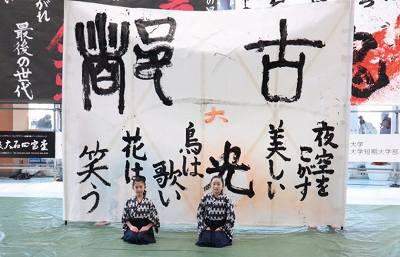 古
邑
大
夜空を
こがす
美しい
光
鳥は
歌い
花は
笑う
がれ
最後の世代
大学
大学短期大学部